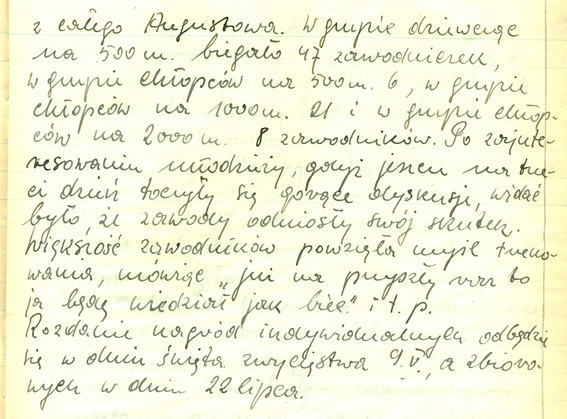 z całego Augustowa. W grupie dziewcząt
na 500 m. biegało 47 zawodniczek,
w grupie chłopców na 500 m. 6, w grupie
chłopców na 1000 m. 21 i w grupie chłop-
ców na 2000 m. 8 zawodników. Po zainte-
resowaniu młodzieży, gdyż jeszcze na trze-
ci dzień toczyły się gorące dyskusje, widać
było, że zawody odniosły swój skutek.
Większość zawodników powzięła myśl treno-
wania, mówiąc „już na przyszły raz to
ja będę wiedział jak biec" i t. p.
Rozdanie nagród indywidualnych odbędzie
się w dniu święta zwycięstwa 9.V., a zbioro-
wych w dniu 22 lipca.